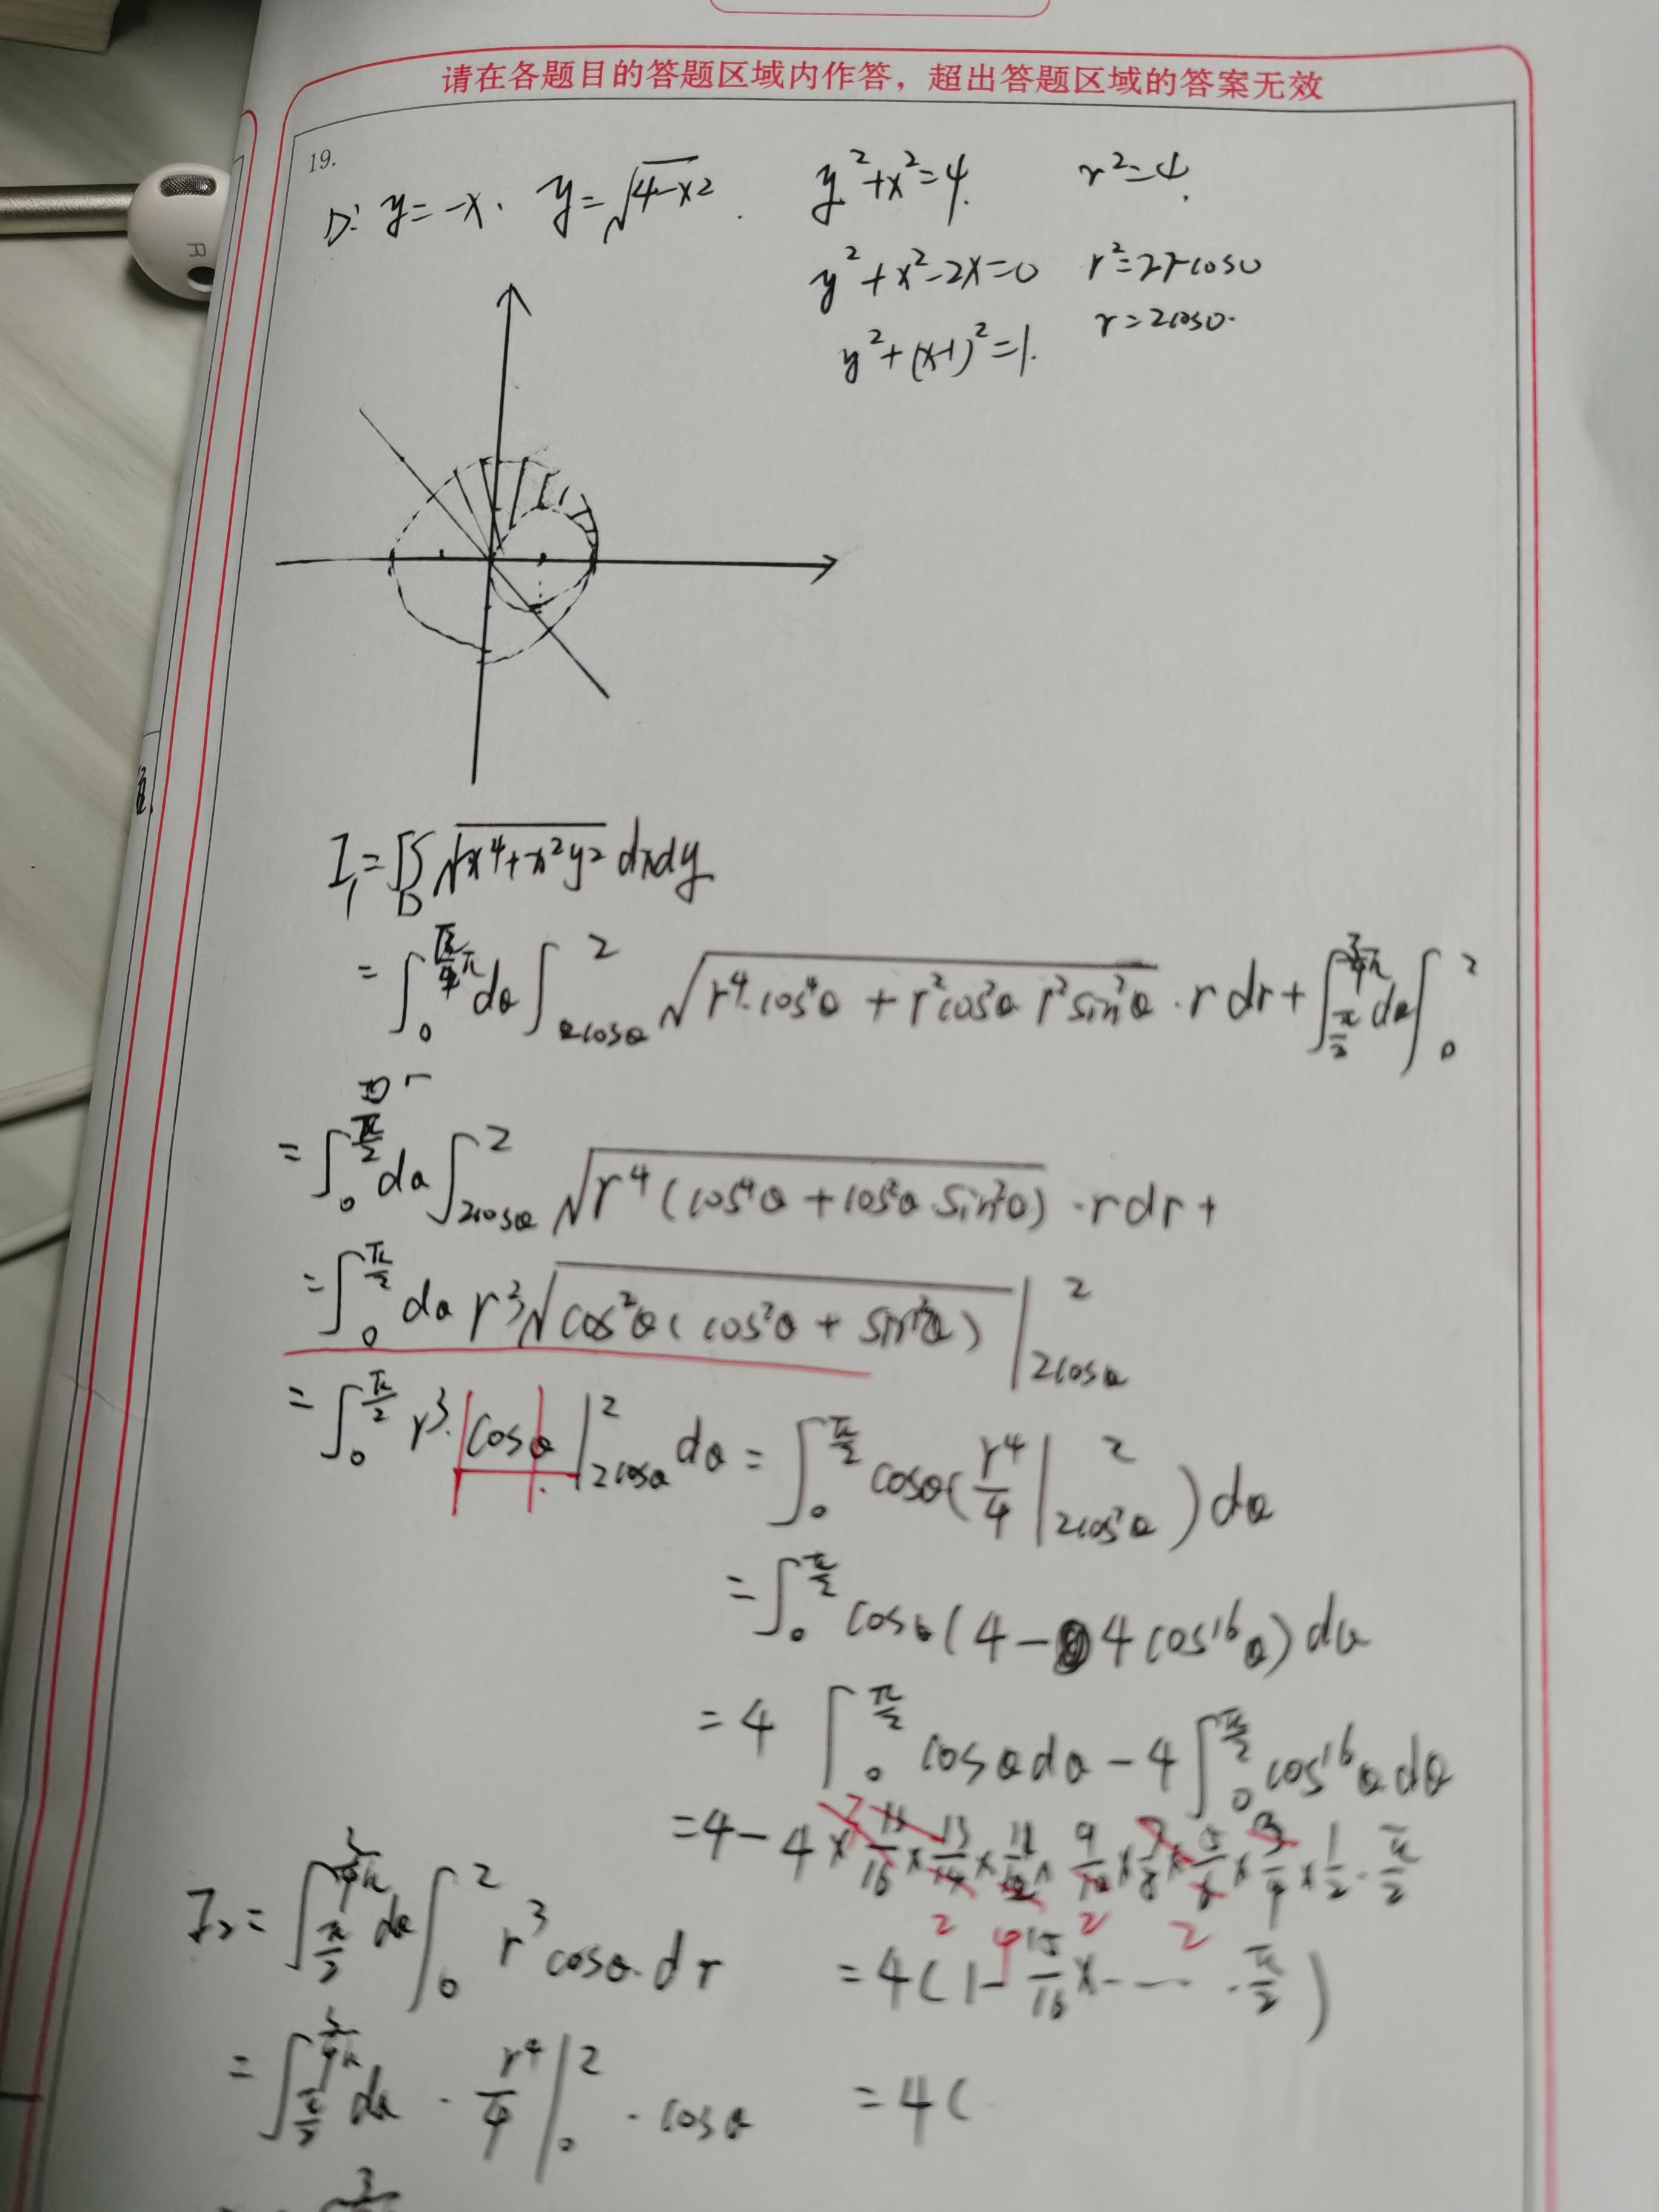 请在各题目的答题区域内作答，超出答题区域的答案无效
19.
D: y=-x. y=√(4-x²). y²+x²=4. r²=4.
y²+x²-2x=0 r²=2rcosθ
y²+(x-1)²=1. r=2cosθ.
I₁=∬_D √(x⁴+x²y²) dxdy
= ∫₀ dθ ∫_{2cosθ}^{2} √(r⁴·cos⁴θ + r²cos²θ r²sin²θ) · r dr + ∫_{π/2}^{3/4π} dθ ∫₀²
= ∫₀^{π/2} dθ ∫_{2cosθ}^{2} √(r⁴(cos⁴θ + cos²θ·sin²θ)) · r dr +
= ∫₀^{π/2} dθ r³ √(cos²θ(cos²θ + sin²θ)) |_{2cosθ}^{2}
= ∫₀^{π/2} r³·|cosθ| |_{2cosθ}^{2} dθ = ∫₀^{π/2} cosθ(r⁴/4 |_{2cos²θ}^{2}) dθ
= ∫₀^{π/2} cosθ(4 - 4cos¹⁶θ) dθ
= 4 ∫₀^{π/2} cosθ dθ - 4 ∫₀^{π/2} cos¹⁶θ dθ
= 4 - 4 × 15/16 × 13/14 × 11/12 × 9/10 × 7/8 × 5/6 × 3/4 × 1/2 · π/2
2 2 2
I₂ = ∫_{π/2}^{3/4π} dθ ∫₀² r³ cosθ·dr
= 4(1 - 15/16 × ---- · π/2)
= ∫_{π/2}^{3/4π} dθ · r⁴/4 |₀² · cosθ
= 4(